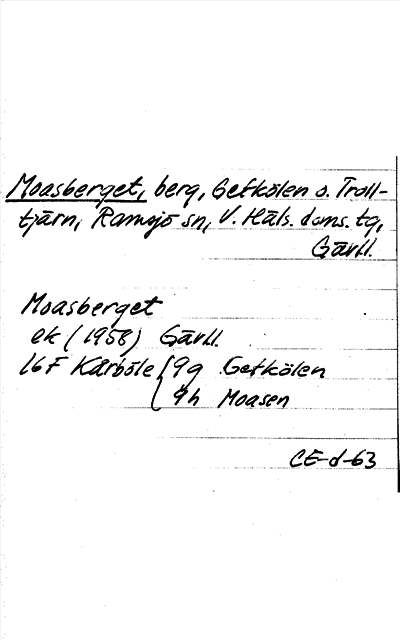 Moasberget, berg, Getkölen o. Troll-
tjärn, Ramsjö sn, V. Häls. doms. tg,
Gävll.
Moasberget
ek (1958) Gävll.
16F Kårböle 9g Getkölen
9h Moasen
CE-d-63